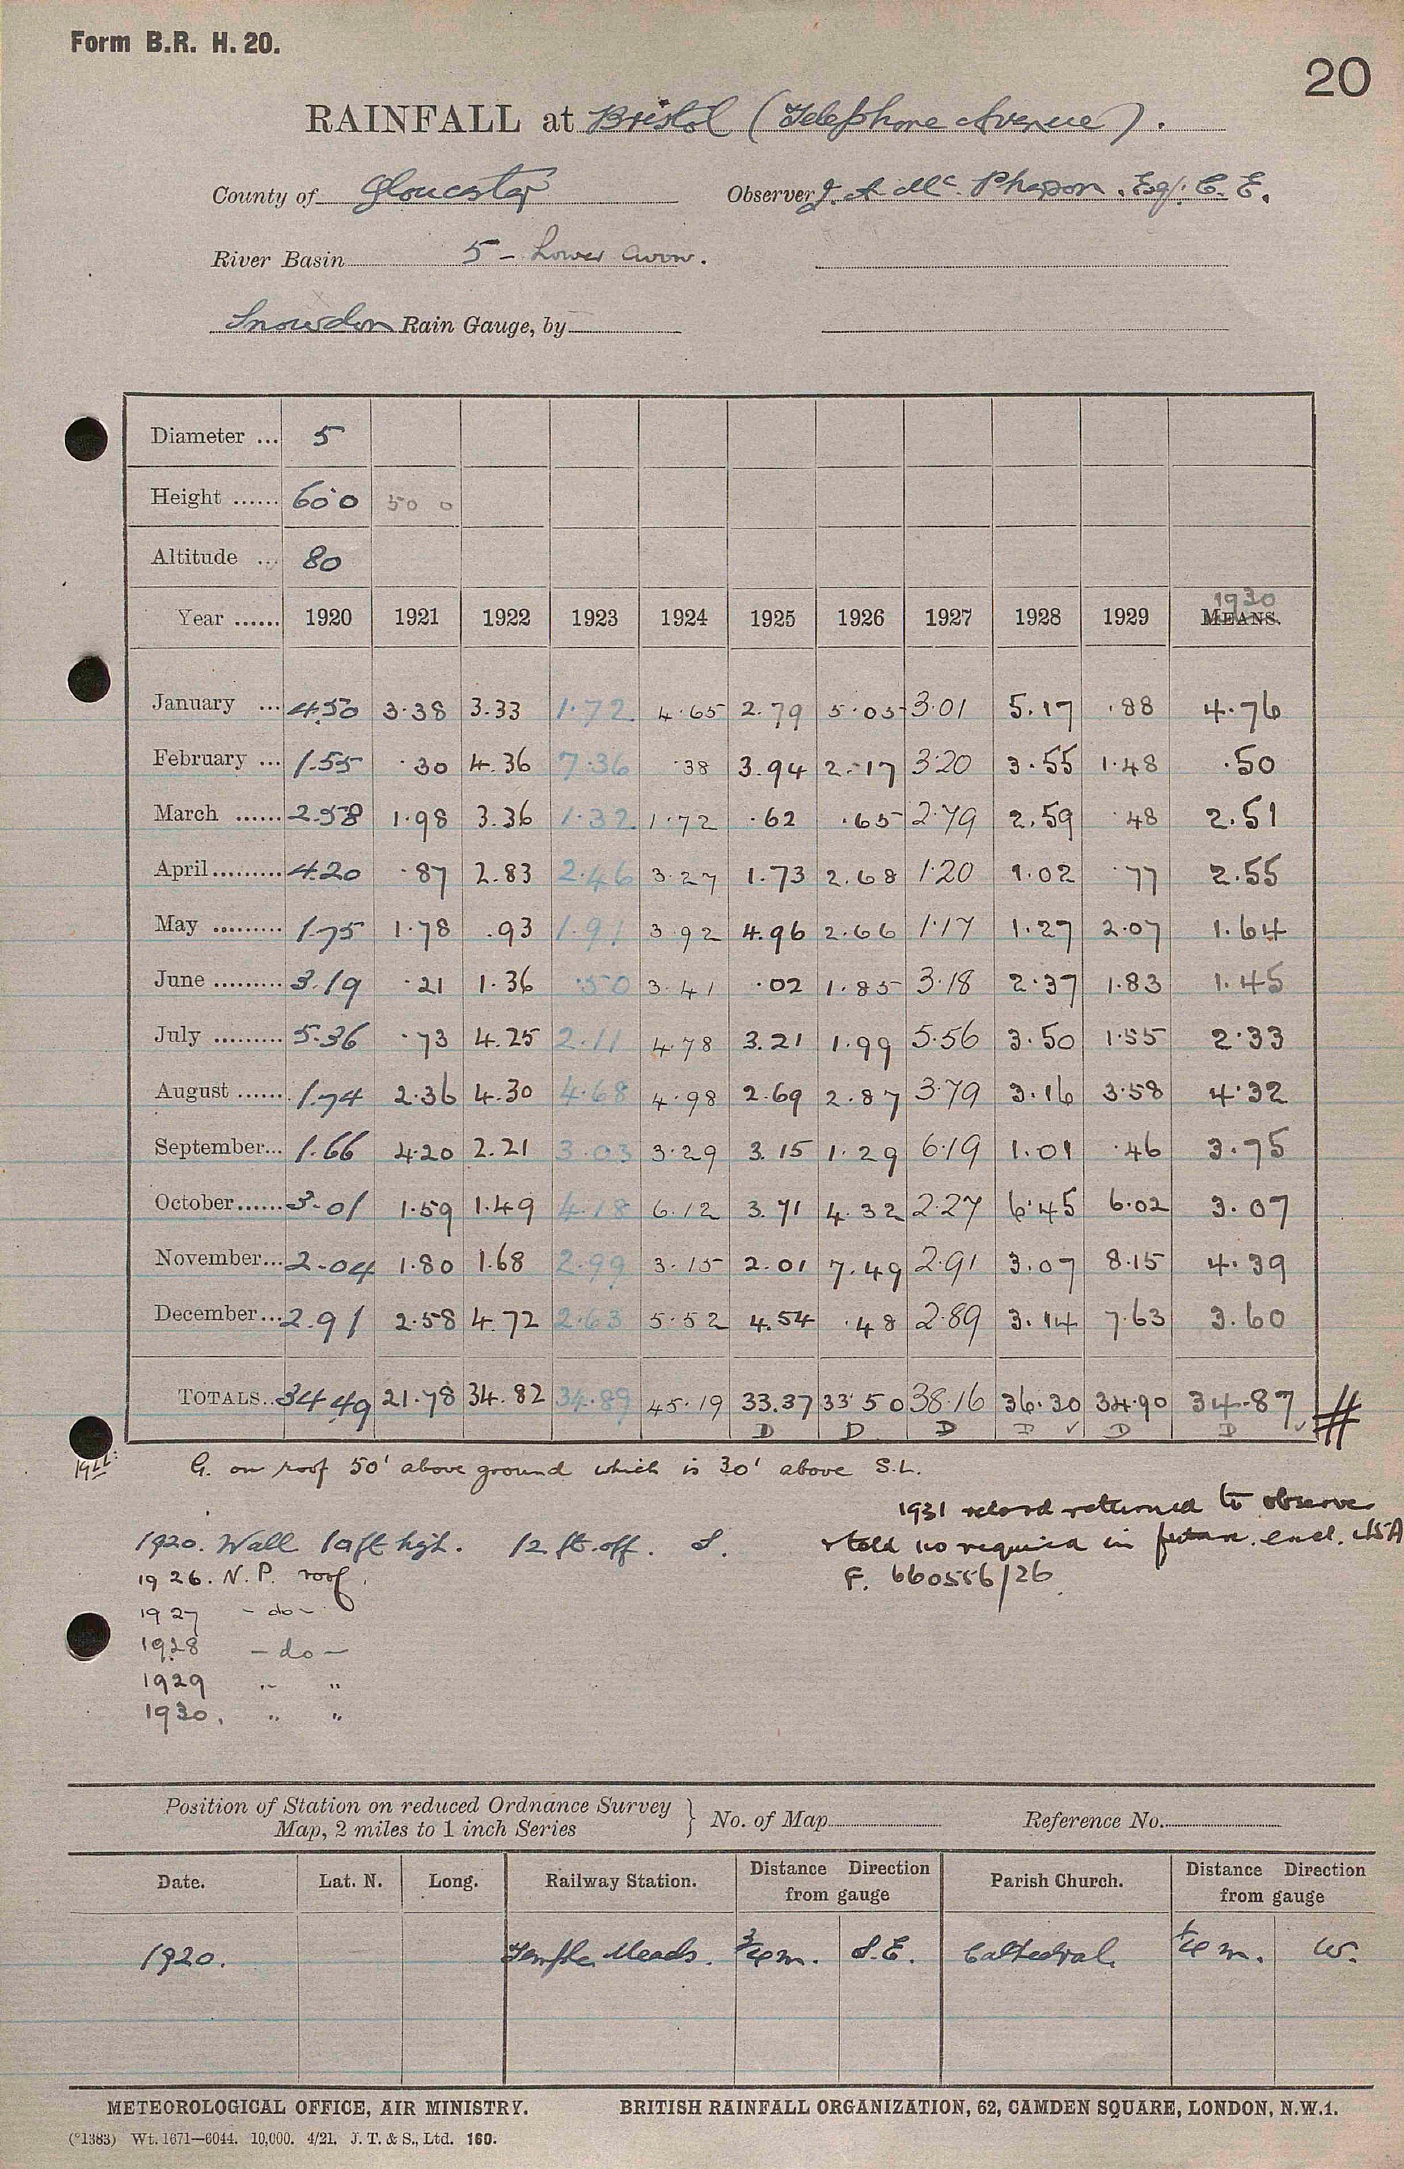 Form B.R. H. 20.
20
RAINFALL at Bristol (Telephone Avenue).
County of Gloucester Observer J. A Mc. Pherson. Esq. C. E.
River Basin 5 - Lower Avon.
Snowdon Rain Gauge, by
Diameter ... 5
Height ...... 60 0 50 0
Altitude ... 80
1930
Year ...... 1920 1921 1922 1923 1924 1925 1926 1927 1928 1929 MEANS.
January ... 4.50 3.38 3.33 1.72 4.65 2.79 5.05 3.01 5.17 .88 4.76
February ... 1.55 .30 4.36 7.36 .38 3.94 2.17 3.20 3.55 1.48 .50
March ...... 2.58 1.98 3.36 1.32 1.72 .62 .65 2.79 2.59 .48 2.51
April......... 4.20 .87 2.83 2.46 3.27 1.73 2.68 1.20 1.02 .77 2.55
May ......... 1.75 1.78 .93 1.91 3.92 4.96 2.66 1.17 1.27 2.07 1.64
June ......... 3.19 .21 1.36 .50 3.41 .02 1.85 3.18 2.37 1.83 1.45
July ......... 5.36 .73 4.25 2.11 4.78 3.21 1.99 5.56 3.50 1.55 2.33
August ...... 1.74 2.36 4.30 4.68 4.98 2.69 2.87 3.79 3.16 3.58 4.32
September... 1.66 4.20 2.21 3.03 3.29 3.15 1.29 6.19 1.01 .46 3.75
October...... 3.01 1.59 1.49 4.18 6.12 3.71 4.32 2.27 6.45 6.02 3.07
November... 2.04 1.80 1.68 2.99 3.15 2.01 7.49 2.91 3.07 8.15 4.39
December... 2.91 2.58 4.72 2.63 5.52 4.54 .48 2.89 3.14 7.63 3.60
TOTALS.. 34.49 21.78 34.82 34.89 45.19 33.37 33.50 38.16 36.30 34.90 34.87 #
D D D D ✓ D D ✓
1922: G. on roof 50' above ground which is 30' above S.L.
1931 record returned to observer
& told no required in future. encl.
1920. Wall 10 ft high. 12 ft. off. S.
F. 660556/26
1926. N. P. roof.
1927 - do -
1928 - do -
1929 " "
1930. " "
Position of Station on reduced Ordnance Survey Map, 2 miles to 1 inch Series } No. of Map Reference No.
Date. Lat. N. Long. Railway Station. Distance Direction from gauge Parish Church. Distance Direction from gauge
1920. Temple Meads. 3/4 m. S.E. Cathedral. 1/4 m. W.
METEOROLOGICAL OFFICE, AIR MINISTRY. BRITISH RAINFALL ORGANIZATION, 62, CAMDEN SQUARE, LONDON, N.W.1.
(*1383) Wt. 1671—6044. 10,000. 4/21. J. T. & S., Ltd. 160.